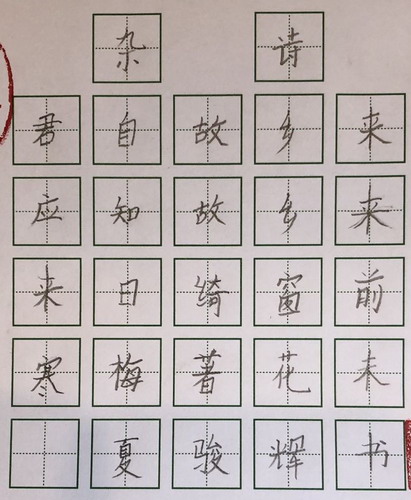 杂诗
君自故乡来
应知故乡来
来日绮窗前
寒梅著花未
夏骏辉书